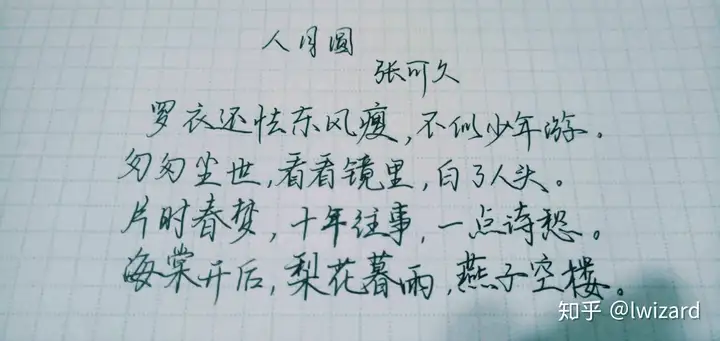 人月圆
张可久
罗衣还怯东风瘦，不似少年游。
匆匆尘世，看看镜里，白了人头。
片时春梦，十年往事，一点诗愁。
海棠开后，梨花暮雨，燕子空楼。
知乎 @lwizard